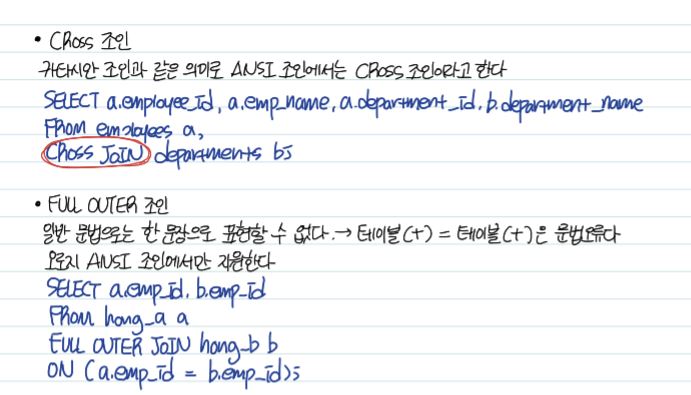 • CROSS 조인
카타시안 조인과 같은 의미로 ANSI 조인에서는 CROSS 조인이라고 한다
SELECT a.employee_id, a.emp_name, a.department_id, b.department_name
FROM employees a,
CROSS JOIN departments b;
• FULL OUTER 조인
일반 문법으로는 한 문장으로 표현할 수 없다. → 테이블(+) = 테이블(+)은 문법오류다
오로지 ANSI 조인에서만 지원한다
SELECT a.emp_id, b.emp_id
FROM hong_a a
FULL OUTER JOIN hong_b b
ON (a.emp_id = b.emp_id);